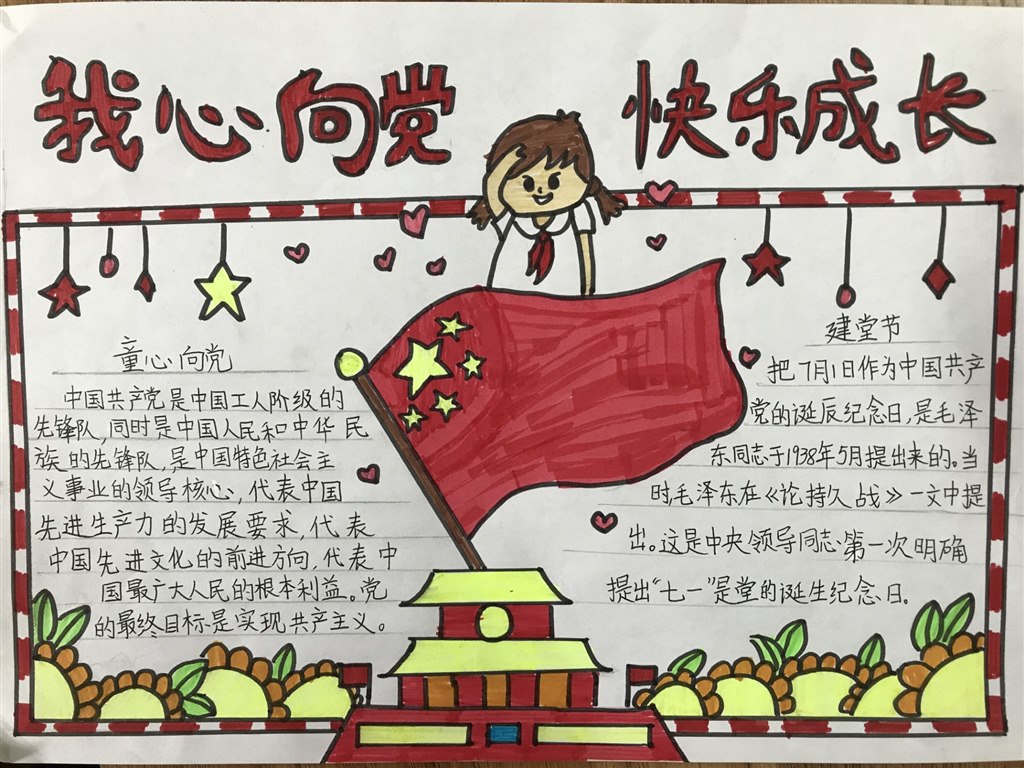 我心向党 快乐成长
童心向党
中国共产党是中国工人阶级的
先锋队,同时是中国人民和中华民
族的先锋队,是中国特色社会主
义事业的领导核心,代表中国
先进生产力的发展要求,代表
中国先进文化的前进方向,代表中
国最广大人民的根本利益。党
的最终目标是实现共产主义。
建堂节
把7月1日作为中国共产
党的诞辰纪念日,是毛泽
东同志于1938年5月提出来的。当
时毛泽东在《论持久战》一文中提
出。这是中央领导同志第一次明确
提出“七一”是堂的诞生纪念日.